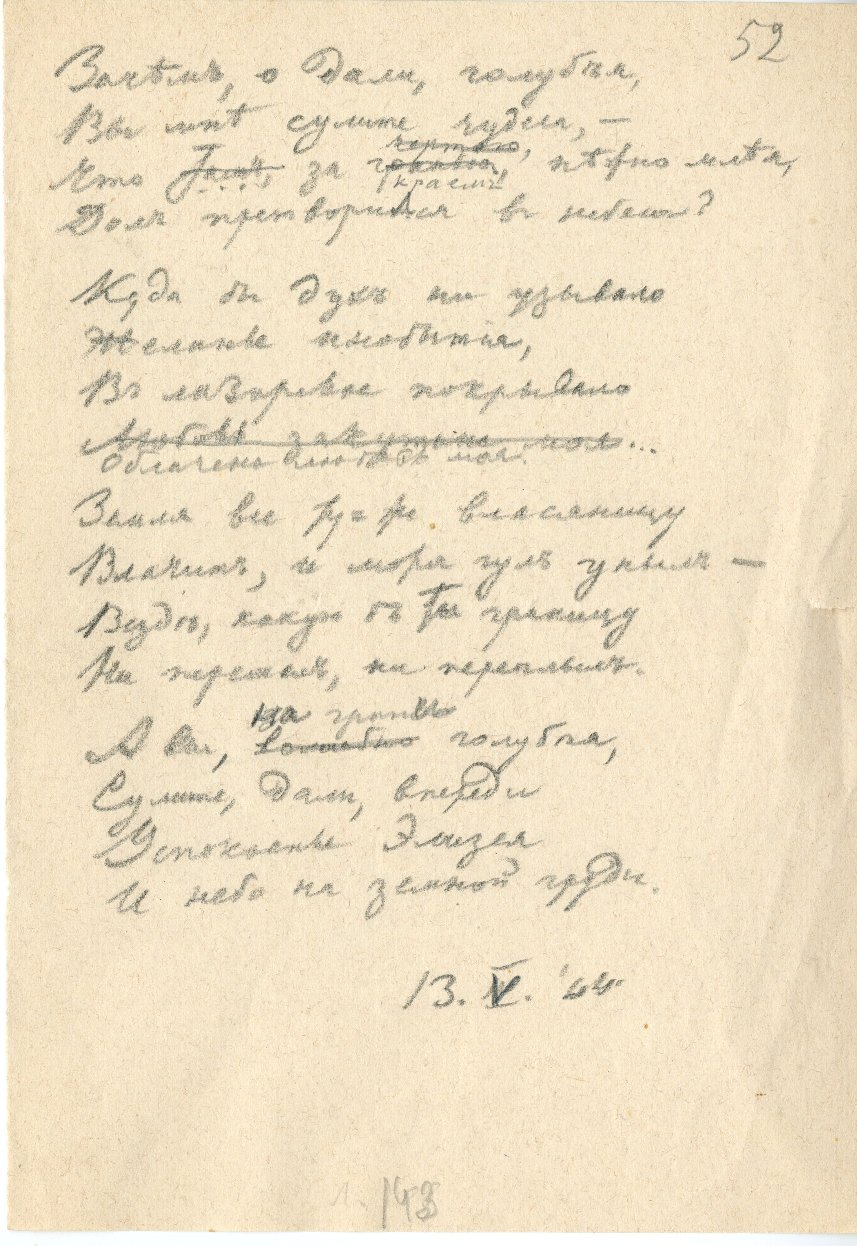 52
Зачѣмъ, о дали, голубѣя,
Вы мнѣ сулите чудеса, —
чертою,
Что Тамъ, за гранью, нѣжно млѣя,
краемъ
Долъ претворился въ небеса?
Куда бы духъ ни узывало
Желанье инобытія,
Въ лазоревое покрывало
Любовь закутана моя...
Облачена любовь моя.
Земля все ту-же власяницу
Влачитъ, и моря гулъ унылъ —
Вездѣ, какую бъ ты границу
Ни перешелъ, ни переплылъ.
на грани
А вы, волшебно голубѣя,
Сулите, дали, впереди
Успокоенье Элизея
И небо на земной груди.
13. V. '44
л. 143